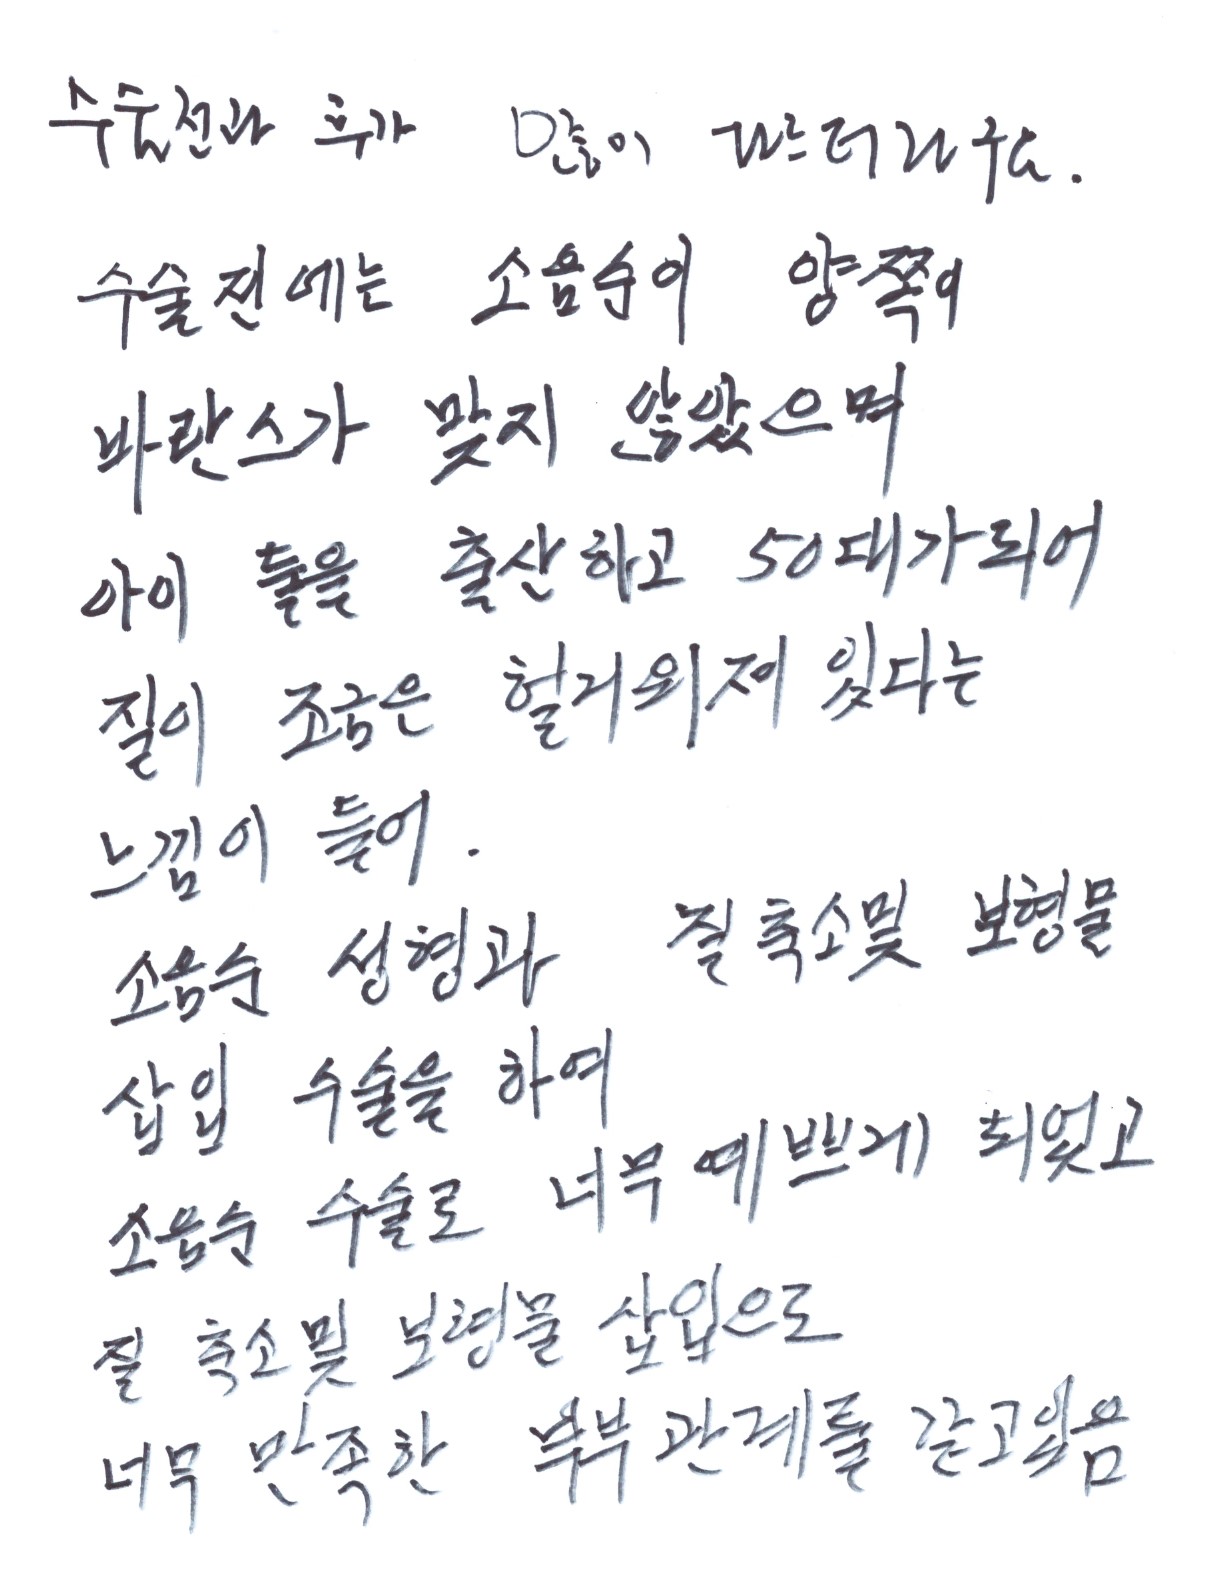 수술전과 후가 많이 다르더라구요.
수술전에는 소음순이 양쪽이
바란스가 맞지 않았으며
아이 둘을 출산하고 50대가되어
질이 조금은 헐거워져 있다는
느낌이 들어.
소음순 성형과 질축소및 보형물
삽입 수술을 하여
소음순 수술로 너무 예쁘게 되었고
질 축소및 보형물 삽입으로
너무 만족한 부부관계를 갇고있음